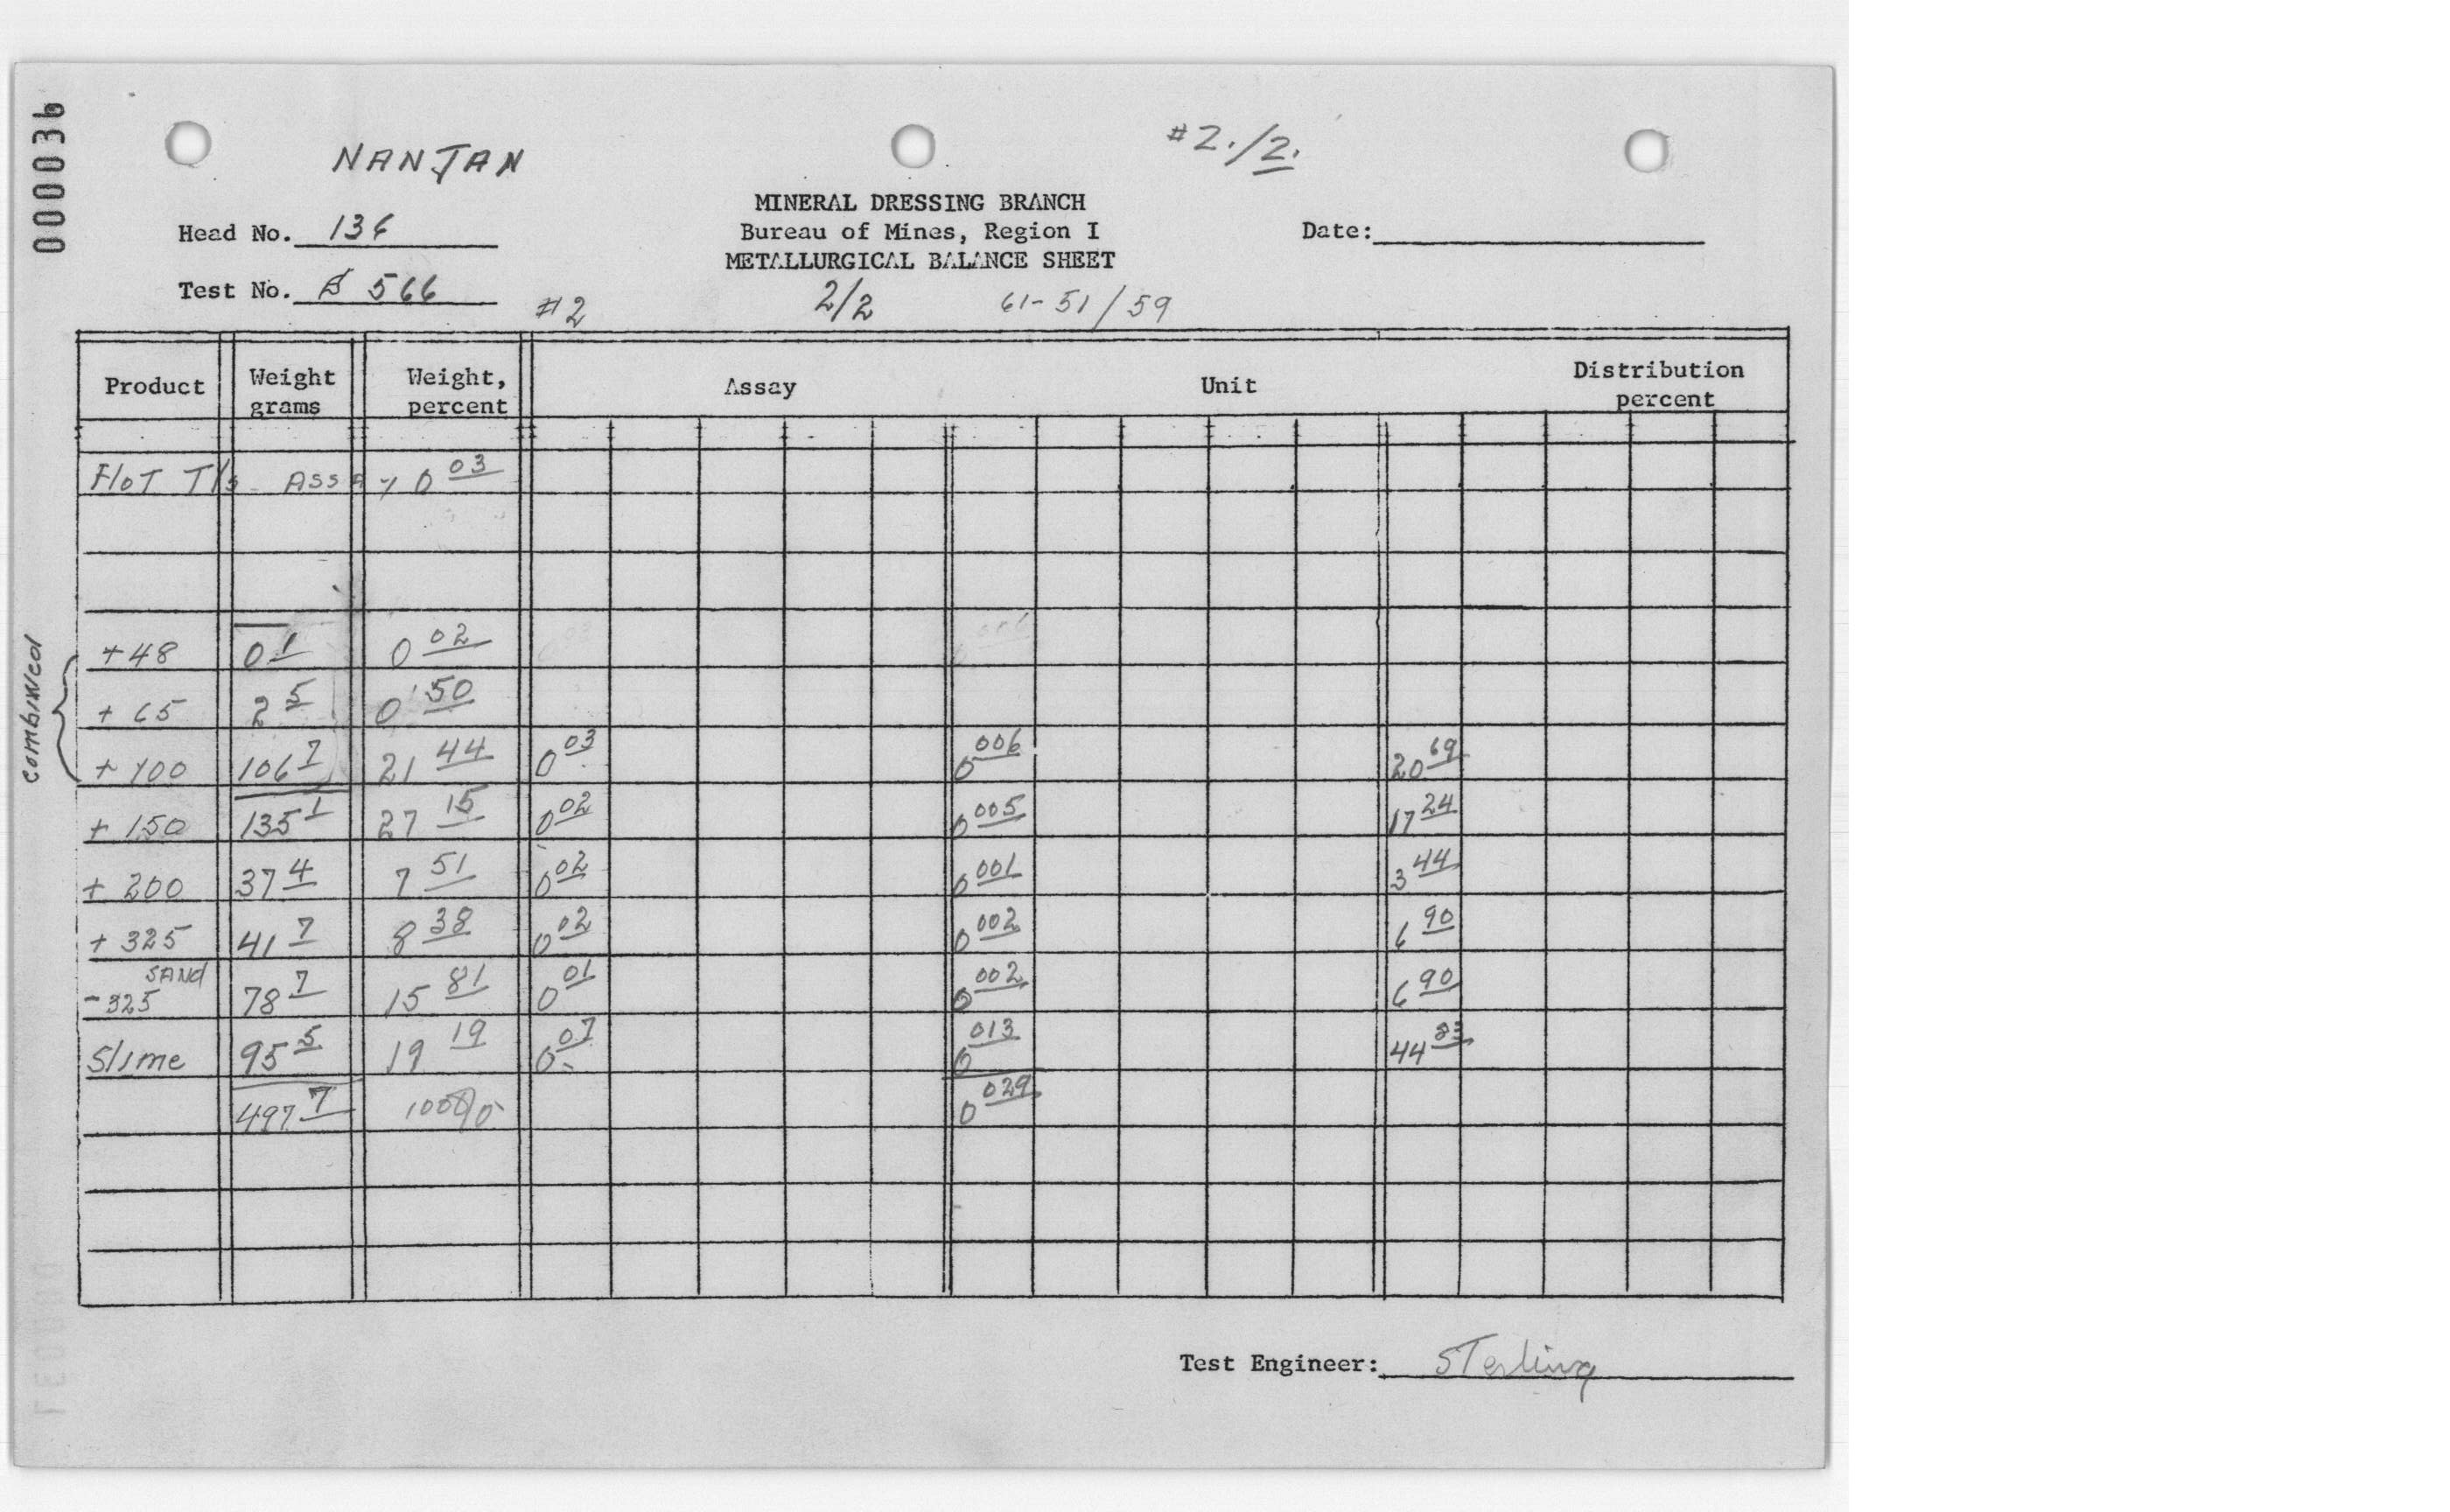 000036
NANJAN
#2./2.
MINERAL DRESSING BRANCH
Head No. 136
Bureau of Mines, Region I
Date:
METALLURGICAL BALANCE SHEET
Test No. 566
#2 2/2 61-51/59
Product Weight grams Weight, percent Assay Unit Distribution percent
Flot Tls - Assay 0.03
combined
+48 0.1 0.02
+65 2.5 0.50
+100 106.7 21.44 0.03 0.006 20.69
+150 135.1 27.15 0.02 0.005 17.24
+200 37.4 7.51 0.02 0.001 3.44
+325 41.7 8.38 0.02 0.002 6.90
-325 SAND 78.7 15.81 0.01 0.002 6.90
Slime 95.5 19.19 0.07 0.013 44.83
497.7 0.029
Test Engineer: Sterling